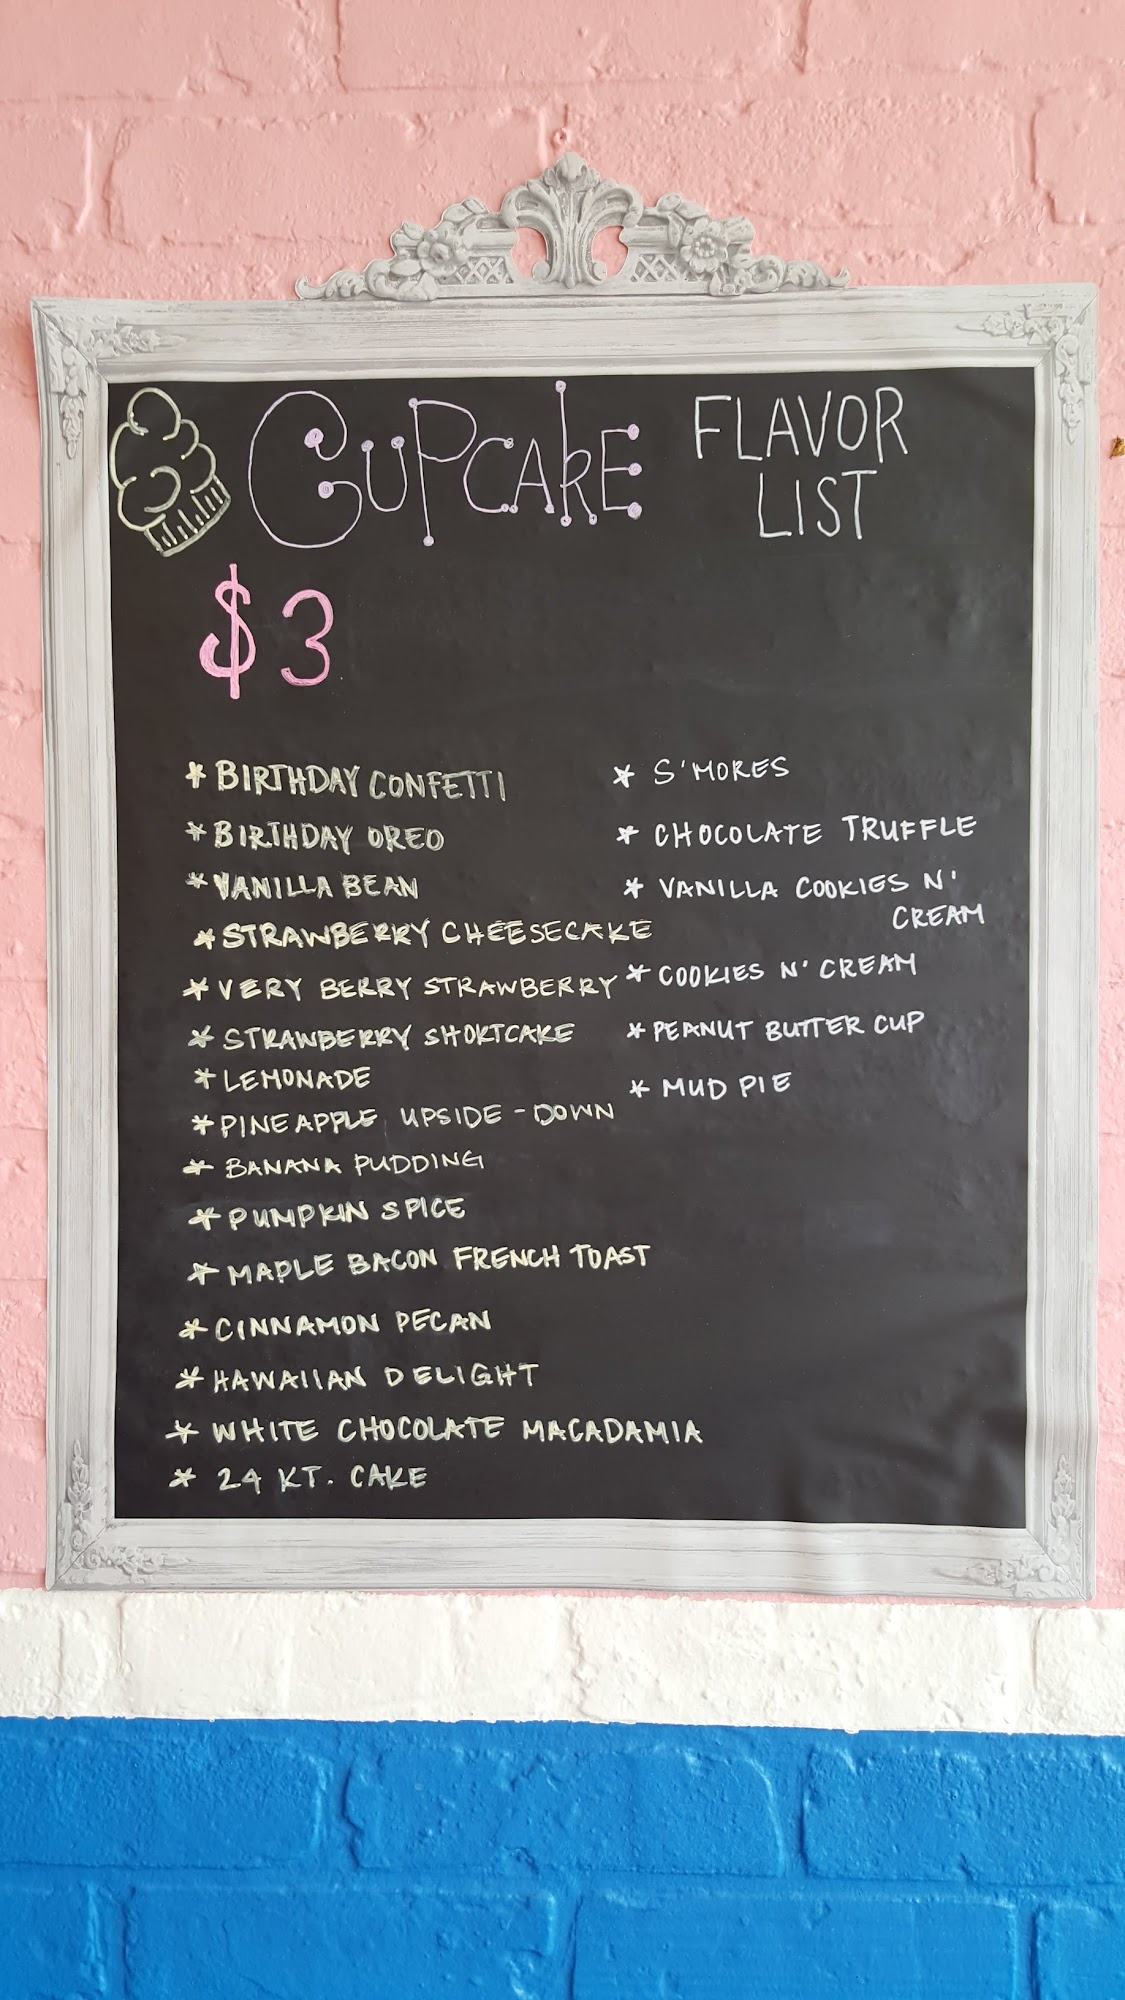 CUPCAKE FLAVOR
LIST
$3
* BIRTHDAY CONFETTI
* BIRTHDAY OREO
* VANILLA BEAN
* STRAWBERRY CHEESECAKE
* VERY BERRY STRAWBERRY
* STRAWBERRY SHORTCAKE
* LEMONADE
* PINEAPPLE UPSIDE-DOWN
* BANANA PUDDING
* PUMPKIN SPICE
* MAPLE BACON FRENCH TOAST
* CINNAMON PECAN
* HAWAIIAN DELIGHT
* WHITE CHOCOLATE MACADAMIA
* 24 KT. CAKE
* S'MORES
* CHOCOLATE TRUFFLE
* VANILLA COOKIES N'
CREAM
* COOKIES N' CREAM
* PEANUT BUTTER CUP
* MUD PIE